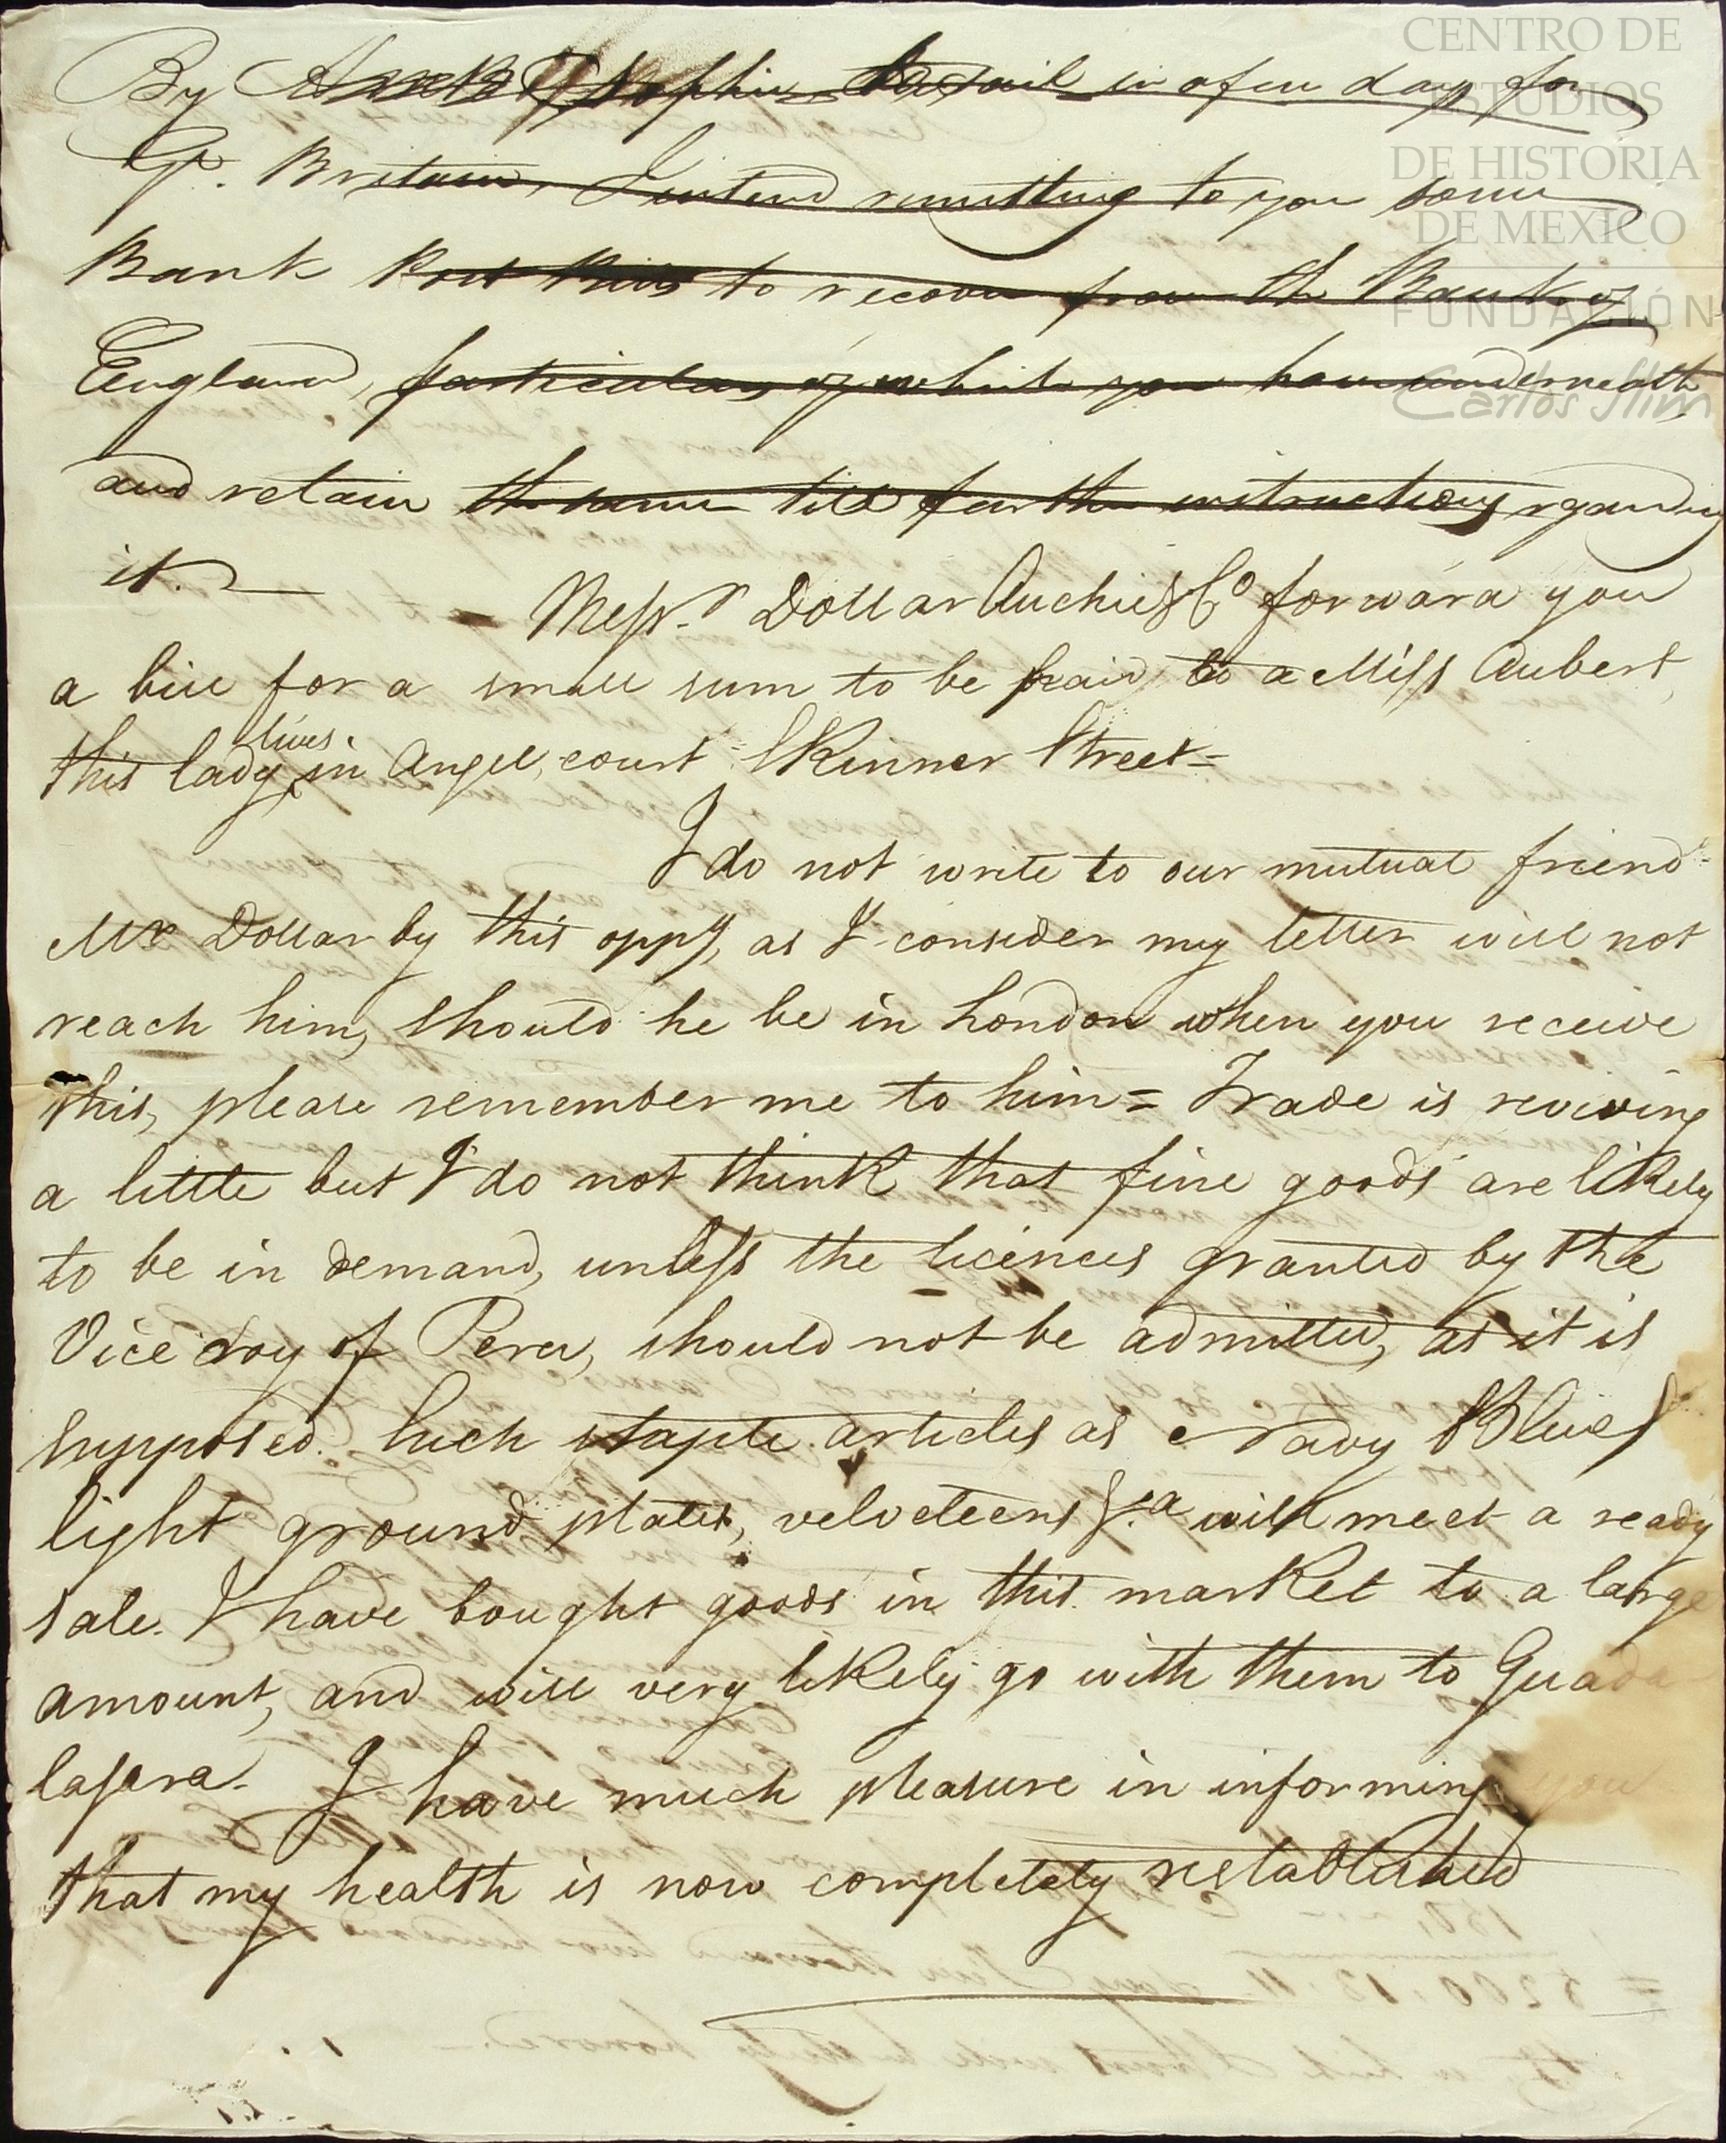 CENTRO DE
ESTUDIOS
DE HISTORIA
DE MEXICO
FUNDACIÓN
Carlos Slim
By to sail in a few days for
Gt. Britain, I intend remitting to you some
Bank Post Bills to recover from the Bank of
England, particulars of which you have underneath
and retain the same till further instructions rgarding
it. —
Messrs Dollar Auchie & Co forward you
a bill for a small sum to be paid to a Miss Aubert,
this lady lives in Angel, court Skinner Street =
I do not write to our mutual friend
Mr Dollar by this oppy, as I consider my letter will not
reach him, should he be in London when you receive
this, please remember me to him = Trade is reviving
a little but I do not think that fine goods are likely
to be in demand, unless the licences granted by the
Vice roy of Peru, should not be admitted, as it is
supposed. Such staple articles as Navy Blues
light ground plates, velveteens &.a will meet a ready
sale. I have bought goods in this market to a large
amount, and will very likely go with them to Guada
lajara. I have much pleasure in informing you
that my health is now completely restablished